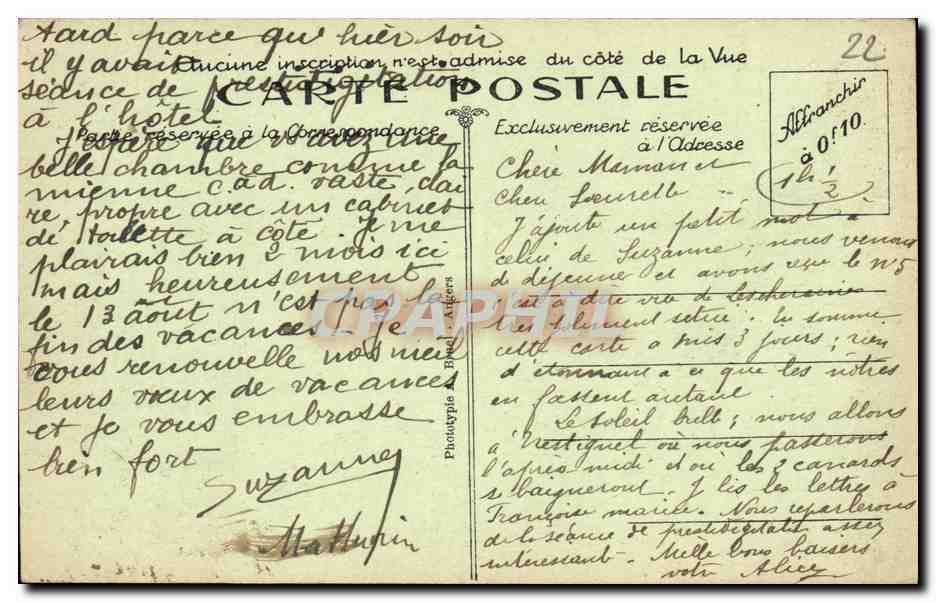 22
tard parce qu'hier soir
il y avait
séance de prestidigitation
à l'hôtel
J'espère que v. avez une
belle chambre comme la
mienne c.a.d. vaste, clai
re, propre avec un cabinet
de toilette à côté Je me
plairais bien 2 mois ici
mais heureusement
le 13 août n'est pas la
fin des vacances! Je
vous renouvelle nos meil
leurs vœux de vacances
et je vous embrasse
bien fort
Suzanne
Mathurin
Aucune inscription n'est admise du côté de la Vue
CARTE POSTALE
Partie réservée à la Correspondance
Exclusivement réservée
à l'Adresse
Affranchir
à 0f10.
1h 1/2
Phototypie Angers
CRAPHIL
Chère Maman et
Chère Sœurette
J'ajoute un petit mot à
celui de Suzanne; nous venons
de déjeuner et avons reçu le n°5
c'est à dire vue de
très joliment située. En somme
cette carte a mis 3 jours; rien
d'étonnant à ce que les nôtres
en fassent autant.
Le soleil brille; nous allons
à où nous passerons
l'après midi et où les 2 canards
se baigneront. J lis les lettres à
Françoise marie. Nous reparlerons
de la séance de prestidigitation assez
intéressant - Mille bons baisers
votre Alice